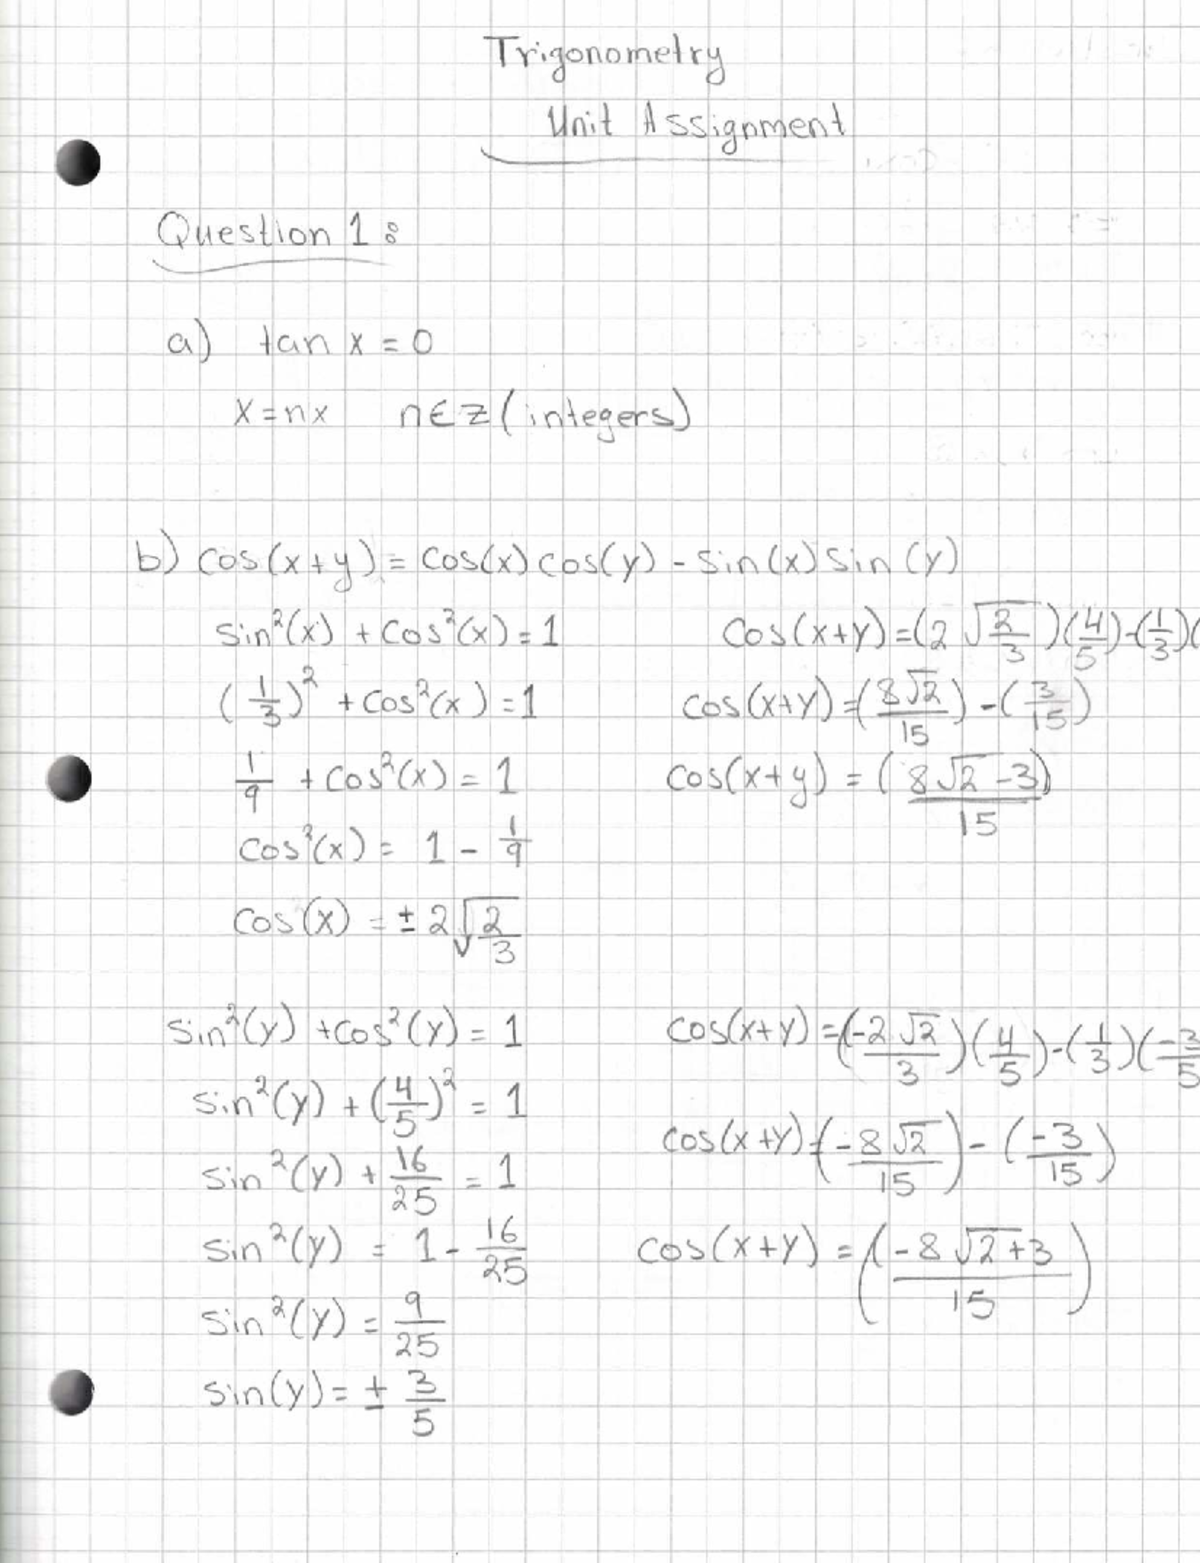 Trigonometry
Unit Assignment
Question 1:
a) tan x = 0
x = nx n∈Z (integers)
b) cos(x+y) = cos(x) cos(y) - sin(x) sin(y)
sin²(x) + cos²(x) = 1
(1/3)² + cos²(x) = 1
1/9 + cos²(x) = 1
cos²(x) = 1 - 1/9
cos(x) = ± 2√2/3
cos(x+y) = (2√2/3)(4/5) - (1/3)(
cos(x+y) = (8√2/15) - (3/15)
cos(x+y) = (8√2-3/15)
sin²(y) + cos²(y) = 1
sin²(y) + (4/5)² = 1
sin²(y) + 16/25 = 1
sin²(y) = 1 - 16/25
sin²(y) = 9/25
sin(y) = ± 3/5
cos(x+y) = (-2√2/3)(4/5) - (1/3)(-3/5
cos(x+y) = (-8√2/15) - (-3/15)
cos(x+y) = (-8√2+3/15)